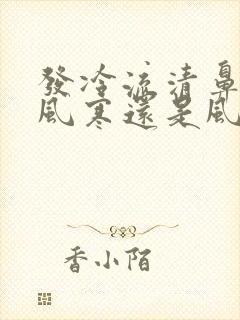 發冷流清鼻
風寒還是風
香小陌